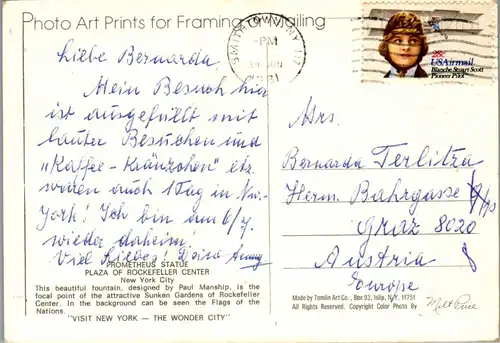 Photo Art Prints for Framing or Mailing
Liebe Bernarda.
Mein Besuch hier
ist ausgefüllt mit
lauter Besuchen und
„Kaffee-Kränzchen" etz.
waren auch 1 Tag in New-
York! Ich bin am 6/7.
wieder daheim!
Viel Liebes! Deine
PROMETHEUS STATUE
PLAZA OF ROCKEFELLER CENTER
New York City
This beautiful fountain, designed by Paul Manship, is the
focal point of the attractive Sunken Gardens of Rockefeller
Center. In the background can be seen the Flags of the
Nations.
"VISIT NEW YORK — THE WONDER CITY"
SMITHTOWN, NY
PM
JUN
1981
28c
USAirmail
Blanche Stuart Scott
Pioneer Pilot
Mrs.
Bernarda Terlitza
Herm. Bahrgasse
Graz 8020
Austria
Europe
Made by Tomlin Art Co., Box 93, Islip, N.Y. 11751
All Rights Reserved. Copyright Color Photo By Milt Price